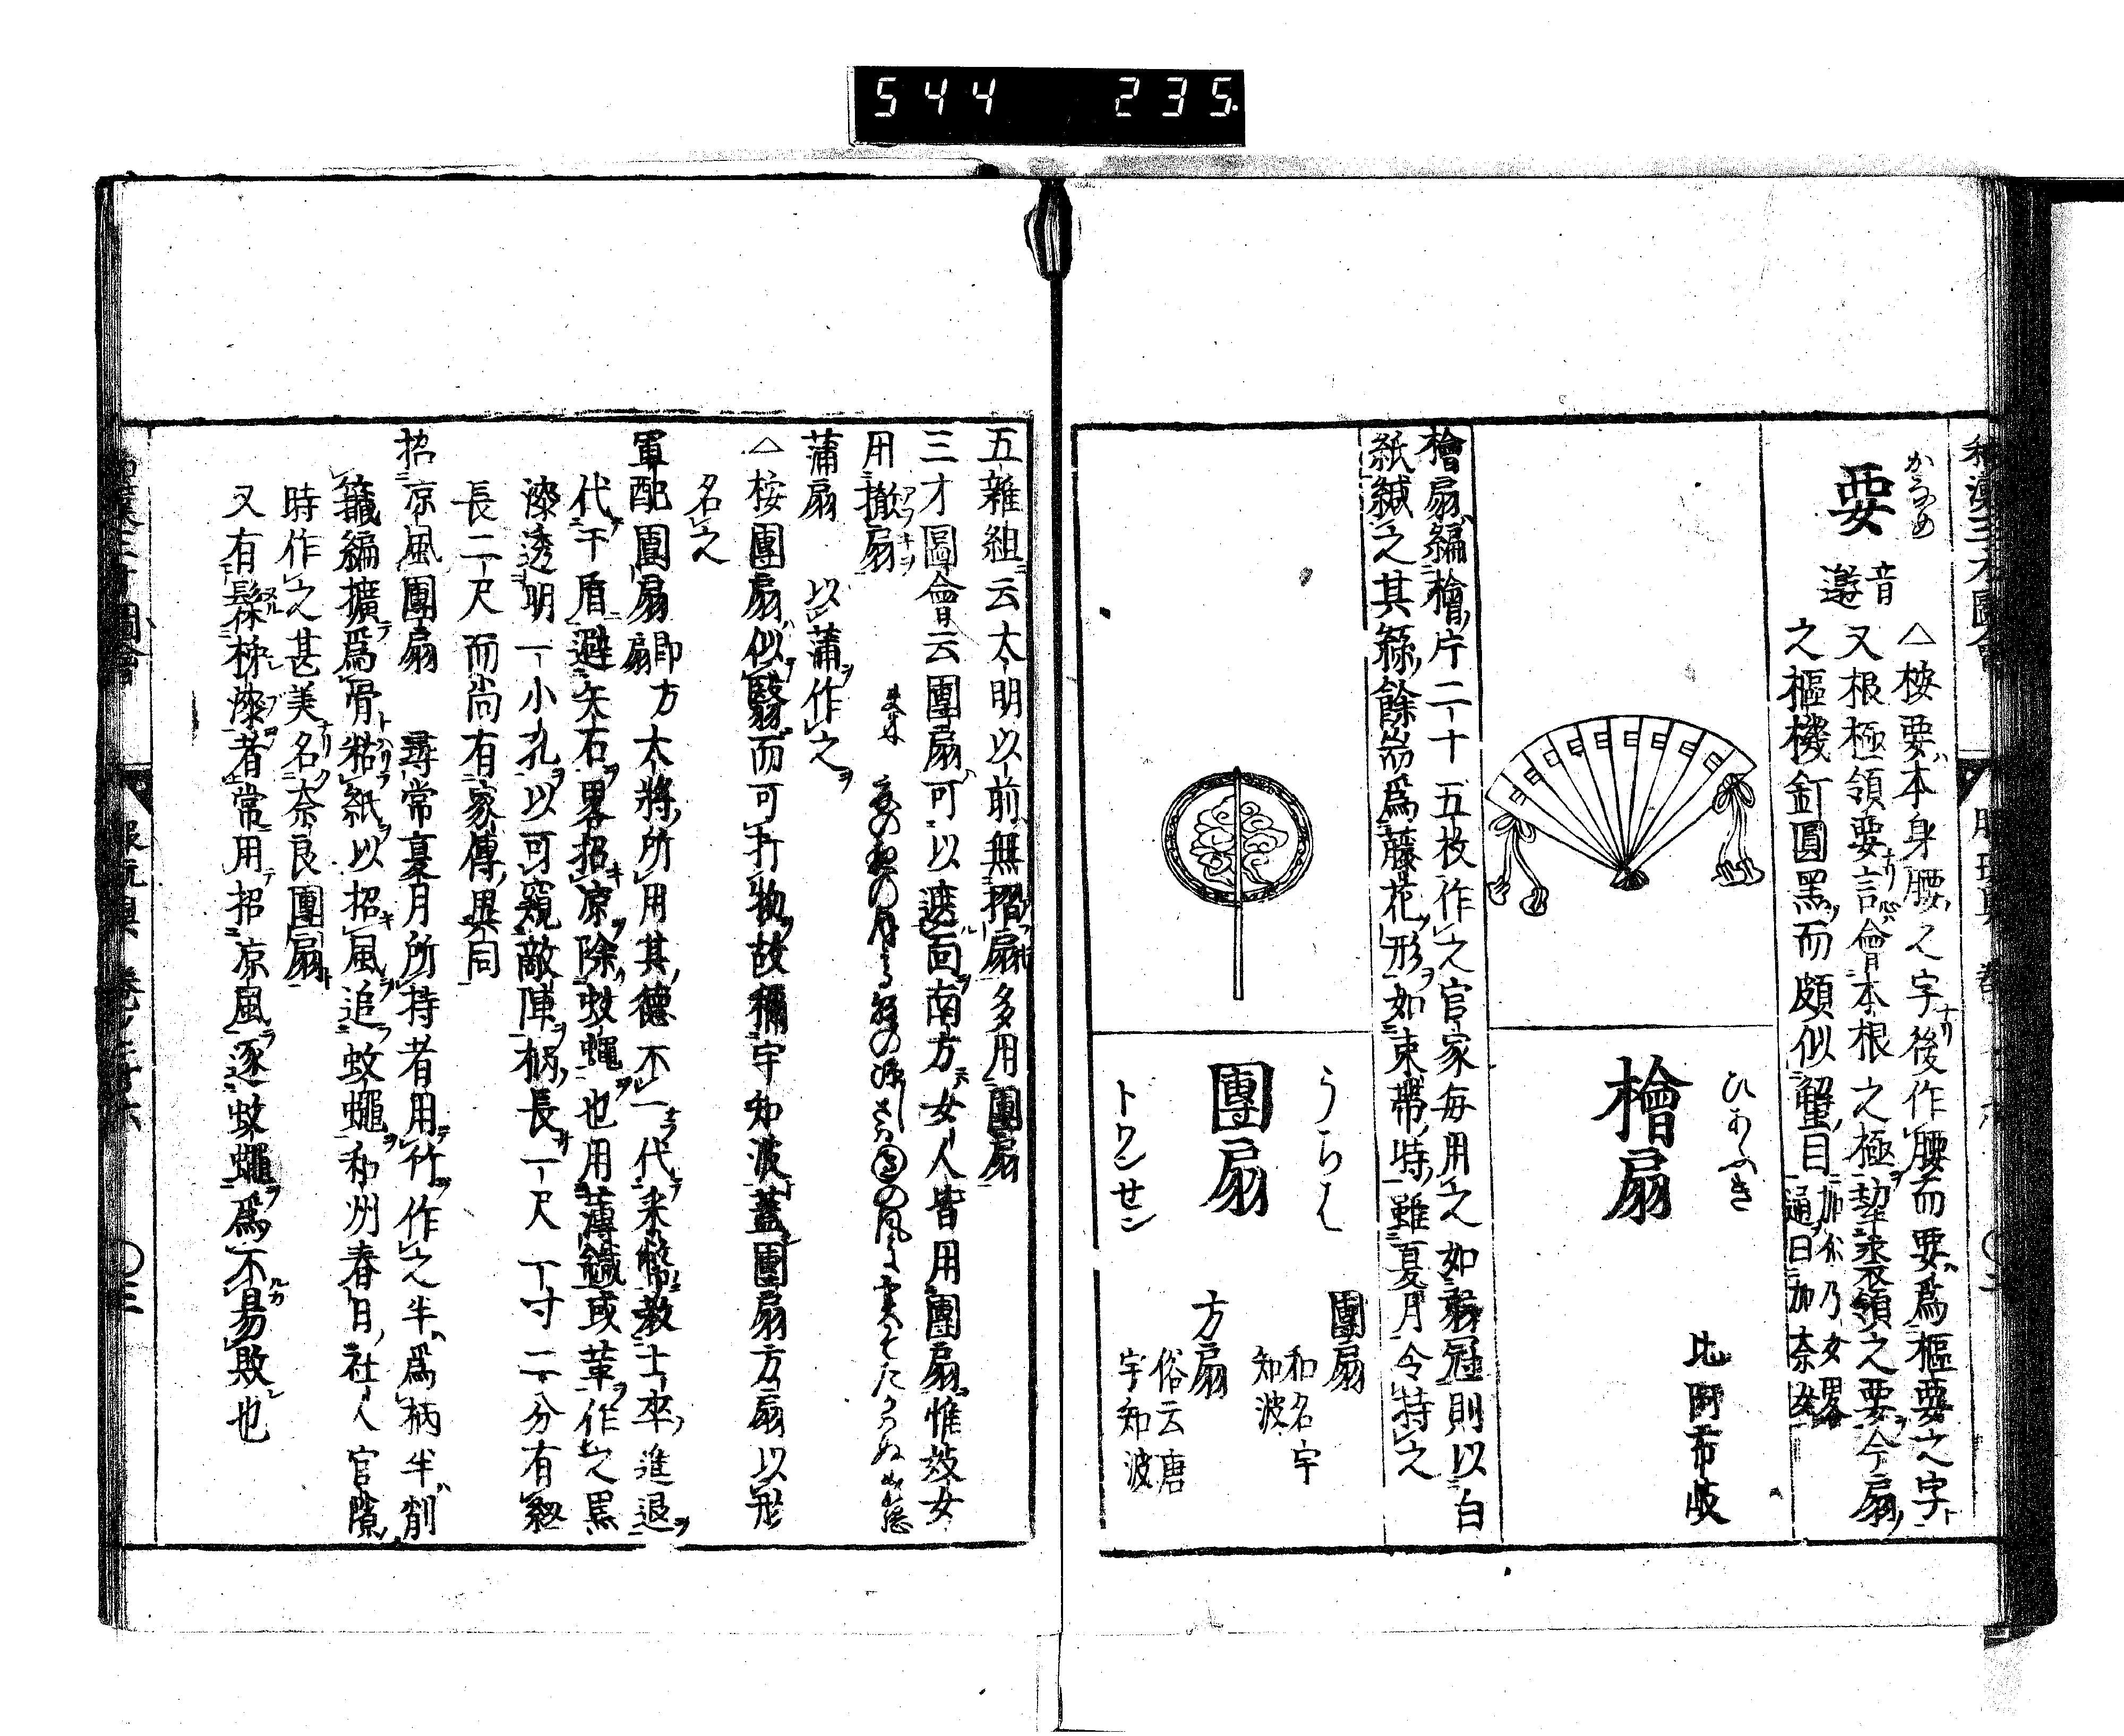 544 235
和漢三才圖會
かなめ
要
音邀
△按要本身腰之字後作腰而要爲樞要之字
又根極領要言會本根之極挈裘領之要今扇
之樞機釘圓黑而頗似蟹目
加仁乃女畧
通曰加奈女
ひあふき
檜扇
比阿布岐
檜扇編檜片二十五枚作之官家毎用之如
冠則以白
紙縅之其餘爲藤花形如束帶時雖夏月令持之
うちは
團扇
トワンせン
團扇
和名宇
知波
方扇
俗云唐
宇知波
五雜組云太明以前無摺扇多用團扇
三才圖會云團扇可以遮面南方女人皆用團扇惟妓女
用撤扇
蒲扇 以蒲作之
△按團扇似翳而可打物故稱宇知波蓋團扇方扇以形
名之
軍配團扇
卽方
扇
大將所用其德不一代采幣敎士卒進退
代干盾避矢石畧招凉除蚊蠅也用薄鐵或革作之黑
漆透明一小孔以可窺敵陣柄長一尺一寸二分有
長二尺而尚有家傳異同
招凉風團扇 尋常夏月所持者用竹作之半爲柄半削
編擴爲骨粘紙以招風追蚊蠅和州春日社人官隙
時作之甚美名奈良團扇
又有髹柹漆者常用招凉風逐蚊蠅爲不易敗也